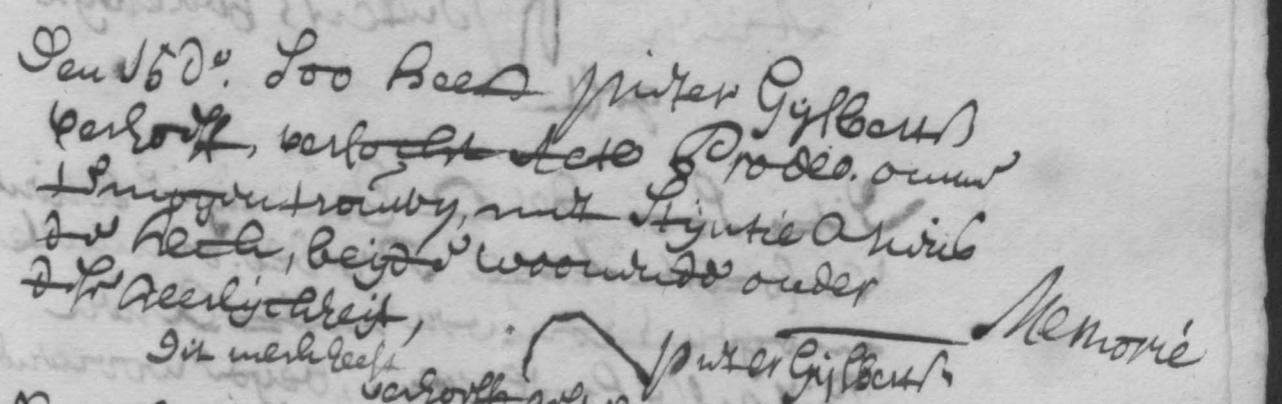 Den 16 do. Soo heeft pieter Gijlberts
verhorst, versocht acte Prodeo. omme
te mogen trouwen, met Stijntie Ariens
de Lech, beijde woonende onder
dese heerlijckheijt, Memorie
Dit merk heeft pieter Gijlberts
verhorst